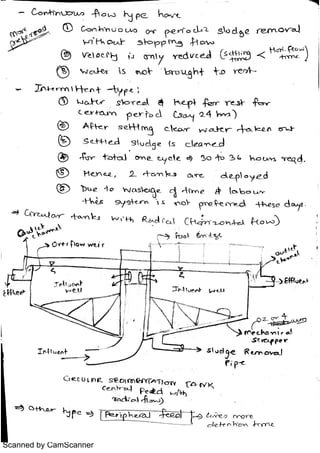 - Continuous flow type have
more preferred
① Continuous or periodic sludge removal without stopping flow
② Velocity is only reduced (settling time < Hor. flow time)
③ Water is not brought to rest.
- Intermittent type:
① Water stored & kept for rest for certain period (say 24 hrs)
② After settling clear water taken out
③ Settled sludge is cleaned
④ for total one cycle → 30 to 36 hours reqd.
⑤ Hence, 2 tanks are deployed
⑥ Due to wastage of time & labour this system is not preferred these days.
⇒ Circular tanks with Radial (Horizontal flow)
Outlet channel
Over flow weir
foot bridge
outlet channel
Influent well
Influent well
Effluent
Effluent
2 or 4 arm
mechanical Scrapper
Influent
Sludge Removal Pipe
CIRCULAR SEDIMENTATION TANK
Central Feed with radial flow)
⇒ Other type ⇒ Peripheral feed → Gives more detention time
Scanned by CamScanner